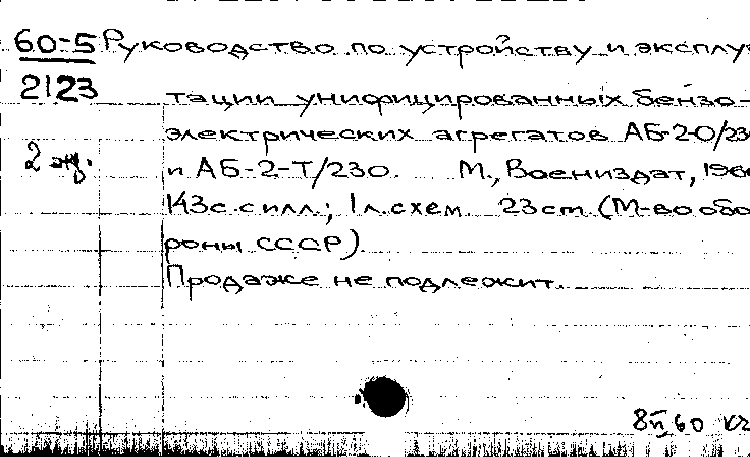 60-5 Руководство по устройству и эксплу
2123
тации унифицированных бензо-
электрических агрегатов АБ-2-О/23
2 экз. и АБ-2-Т/230. М., Воениздат, 196
143с. с илл.; 1 л. схем. 23 см (М-во обо
роны СССР).
Продаже не подлежит.
60